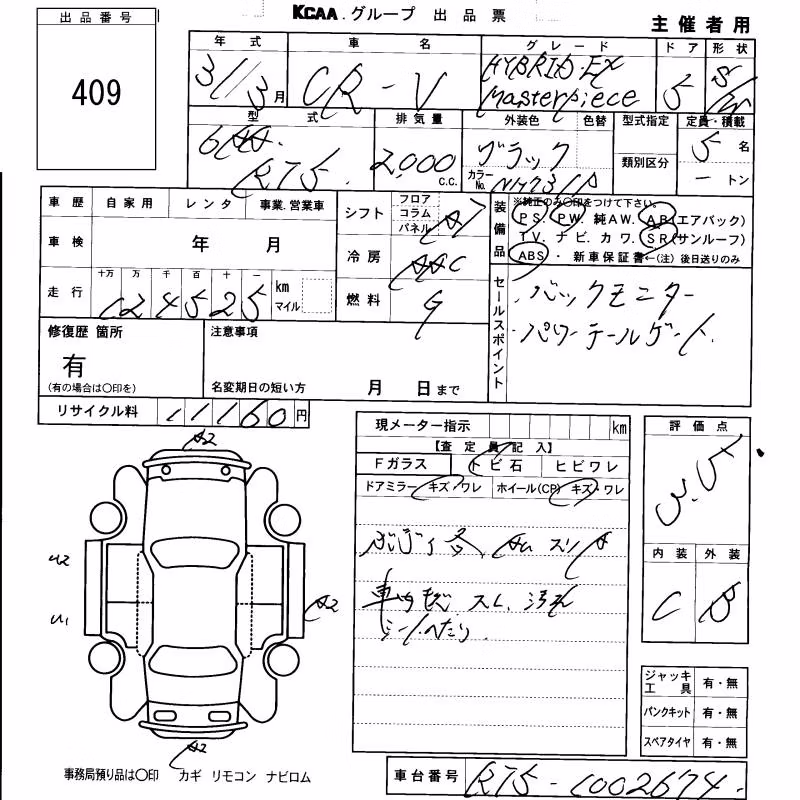 KCAA.グループ 出品票
主催者用
出品番号
409
年式 車名 グレード ドア 形状
31/3月 CR-V HYBRID・EX Masterpiece 5 S/W
型式 排気量 外装色 色替 型式指定 定員・積載
6AA RT5 2,000 C.C. ブラック 類別区分 5名
カラーNo. NH731P ートン
車歴 自家用 レンタ 事業.営業車
シフト フロア コラム パネル AT
装備品
※純正のみ○印をつけて下さい。
PS. PW. 純AW. AB(エアバック)
TV. ナビ. カワ. SR(サンルーフ)
ABS・新車保証書←(注)後日送りのみ
車検 年 月
冷房 AAC
走行 十万 万 千 百 十 一
24525 km マイル
燃料 G
セールスポイント
バックモニター
パワーテールゲート.
修復歴 箇所
有
(有の場合は○印を)
注意事項
名変期日の短い方 月 日まで
リサイクル料 11160円
現メーター指示 km
【査定員記入】
Fガラス トビ石 ヒビワレ
ドアミラー キズ・ワレ ホイール(CP) キズ・ワレ
車内 キズ、スレ、汚れ
シートへたり
評価点
3.5
内装 外装
C B
A2
U2
U1
A2
A2
ジャッキ工具 有・無
パンクキット 有・無
スペアタイヤ 有・無
事務局預り品は○印 カギ リモコン ナビロム
車台番号 RT5-1002674